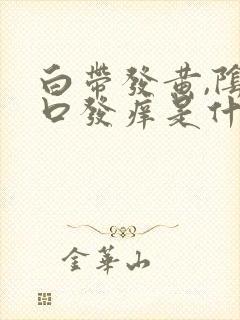 白帶發黄,陰
口發痒是什
金華山